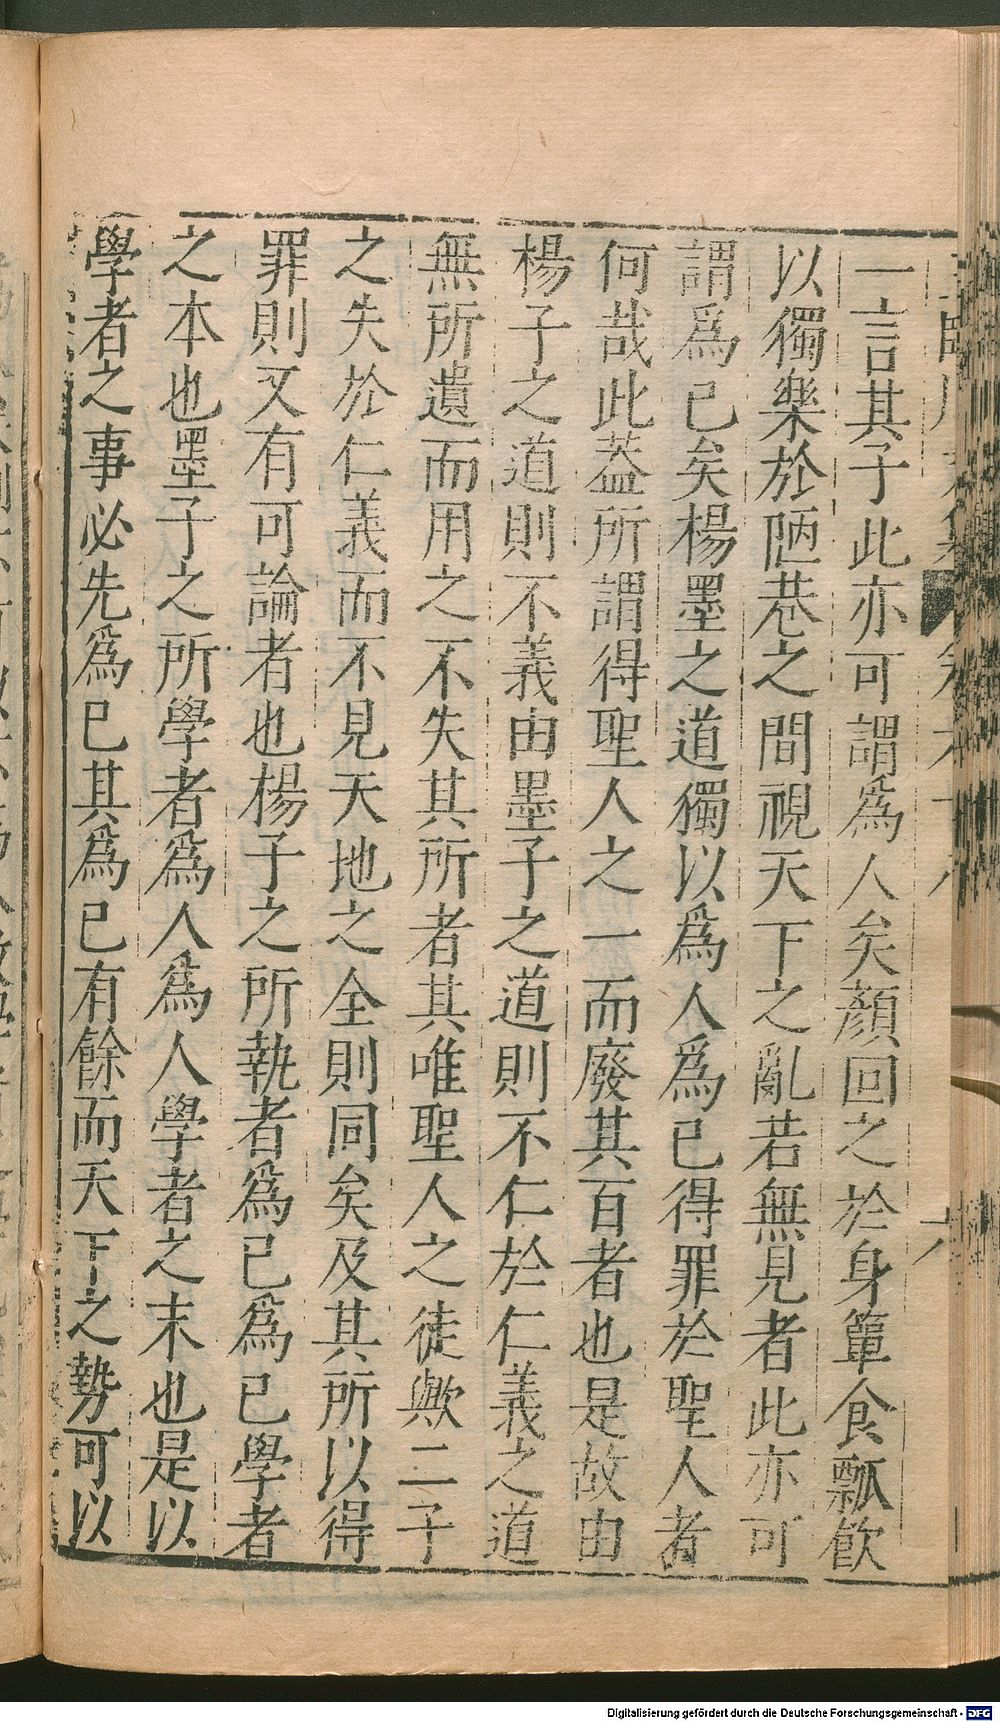 一言其子此亦可謂爲人矣顏回之於身簞食瓢飲
以獨樂於陋巷之間視天下之亂若無見者此亦可
謂爲已矣楊墨之道獨以爲人爲已得罪於聖人者
何哉此葢所謂得聖人之一而廢其百者也是故由
楊子之道則不義由墨子之道則不仁於仁義之道
無所遺而用之不失其所者其唯聖人之徒歟二子
之失於仁義而不見天地之全則同矣及其所以得
罪則又有可論者也楊子之所執者爲已爲已學者
之本也墨子之所學者爲人爲人學者之末也是以
學者之事必先爲已其爲已有餘而天下之勢可以
Digitalisierung gefördert durch die Deutsche Forschungsgemeinschaft - DFG